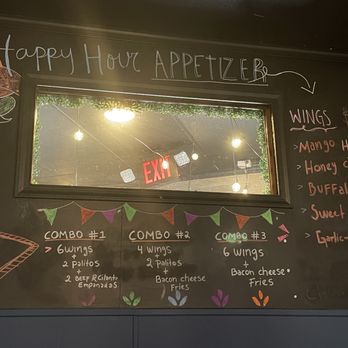 Happy Hour APPETIZER
EXIT
WINGS
> Mango H
> Honey
> Buffal
> Sweet
> Garlic-
COMBO #1
> 6 wings
+
2 palitos
+
2 BEEF & Cilantro
Empanadas
COMBO #2
4 wings
+
2 palitos
+
Bacon cheese
Fries
COMBO #3
6 wings
+
Bacon cheese
Fries